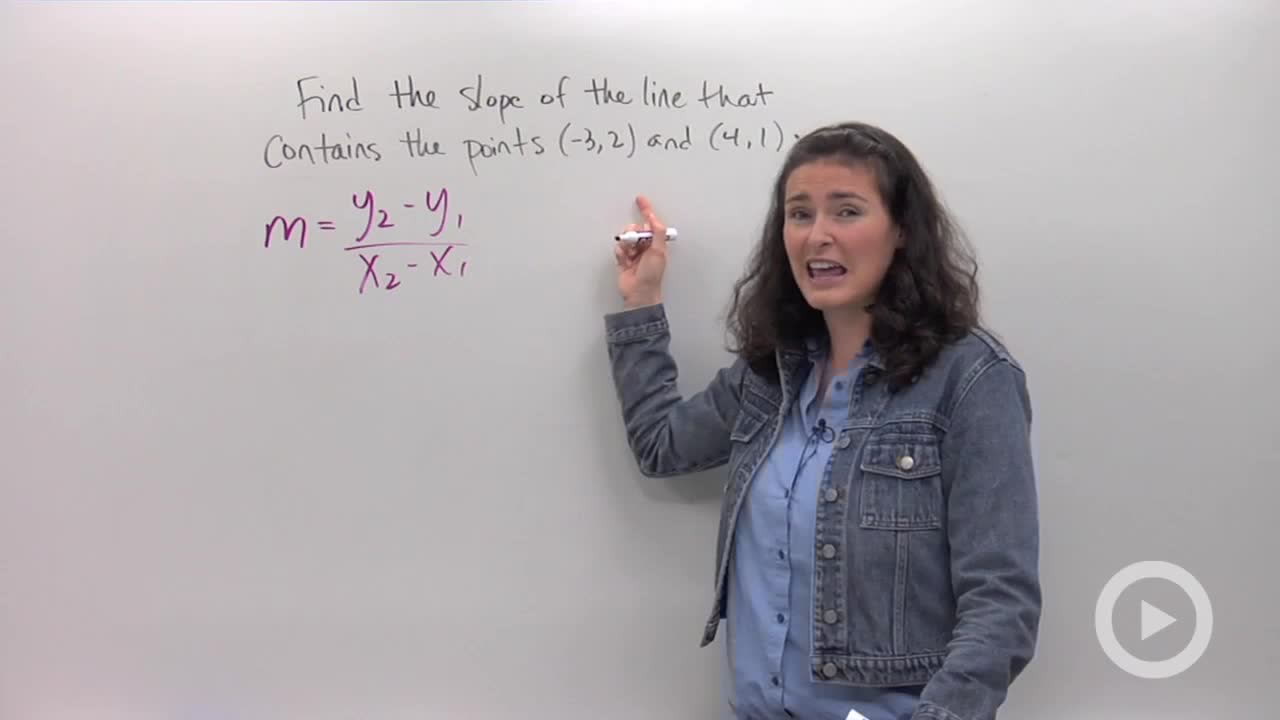 Find the slope of the line that
contains the points (-3,2) and (4,1).
m = y₂ - y₁
x₂ - x₁